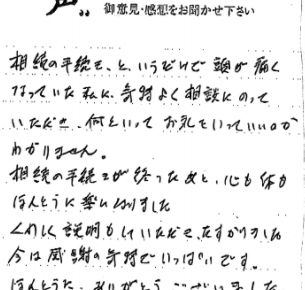 声
御意見・感想をお聞かせ下さい
相続の手続き、というだけで頭が痛く
なっていた私に、気持よく相談にのって
いただき、何といってお礼をいっていいのか
わかりません。
相続の手続きが終ったあと、心も体も
ほんとうに楽になりました
くわしく説明もしていただき、たすかりました
今は感謝の気持でいっぱいです。
ほんとうに、ありがとうございました